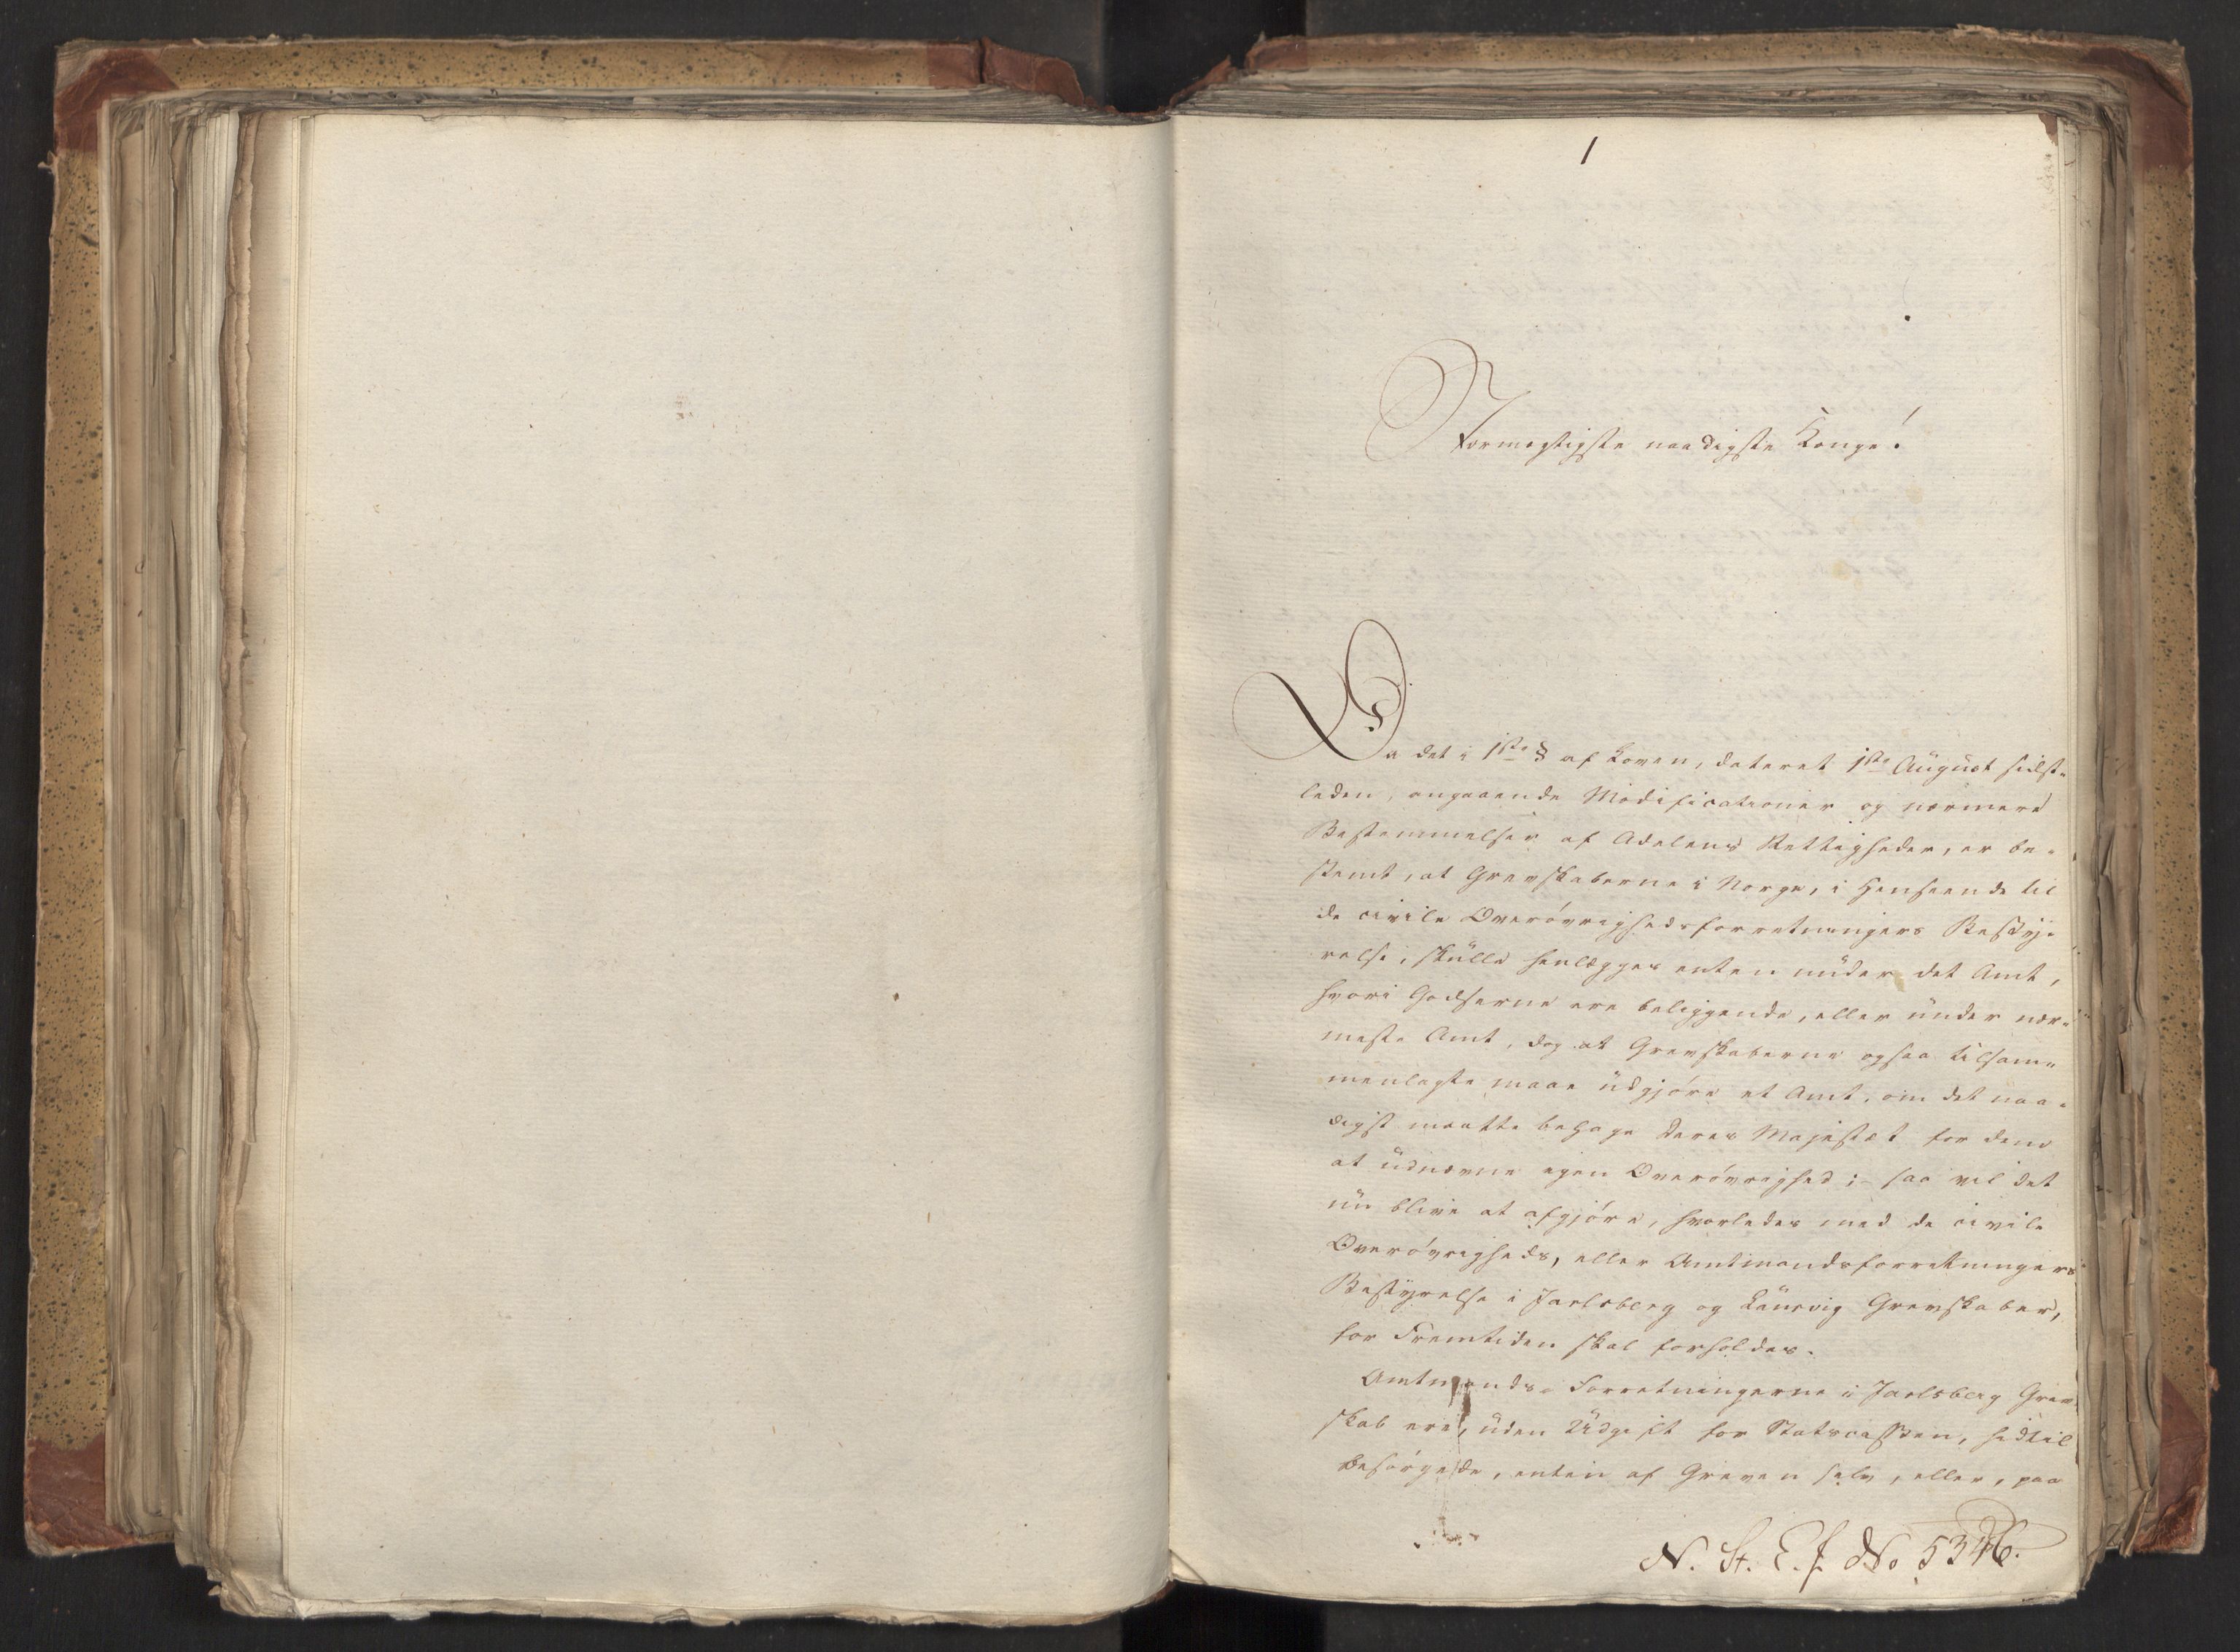 1
Stormægtigste naadigste Konge!
Da det i 1ste § af Loven, dateret 1ste August sidst-
leden, angaaende Modificationer og nærmere
Bestemmelser af Adelens Rettigheder, er be-
stemt, at Grevskaberne i Norge, i Henseende til
de civile Overøvrighedsforretningers Besty-
relse, skulle henlægges enten under det Amt,
hvori Godserne ere beliggende, eller under nær-
meste Amt, dog at Grevskaberne ogsaa tilsam-
menlagte maae udgjøre et Amt, om det naa-
digst maatte behage Deres Majestæt for dem
at udnævne egen Overøvrighed; - saa vil det
nu blive at afgjøre, hvorledes med de civile
Overøvrigheds, eller Amtmandsforretningers
Bestyrelse i Jarlsberg og Laurvig Grevskaber,
for Fremtiden skal forholdes.
Amtmands-Forretningerne i Jarlsberg Grev-
skab ere, uden Udgift for Statscassen, hidtil
besørgede, enten af Greven selv, eller, paa
N. St. E. f. No 5346.